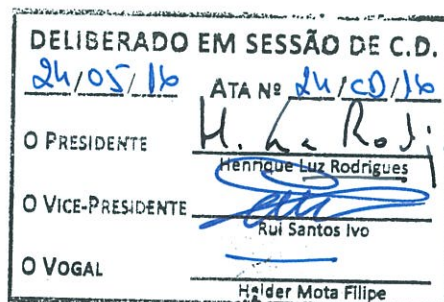 DELIBERADO EM SESSÃO DE C.D.
24/05/16 ATA Nº 24/CD/16
O PRESIDENTE
Henrique Luz Rodrigues
O VICE-PRESIDENTE
Rui Santos Ivo
O VOGAL
Helder Mota Filipe